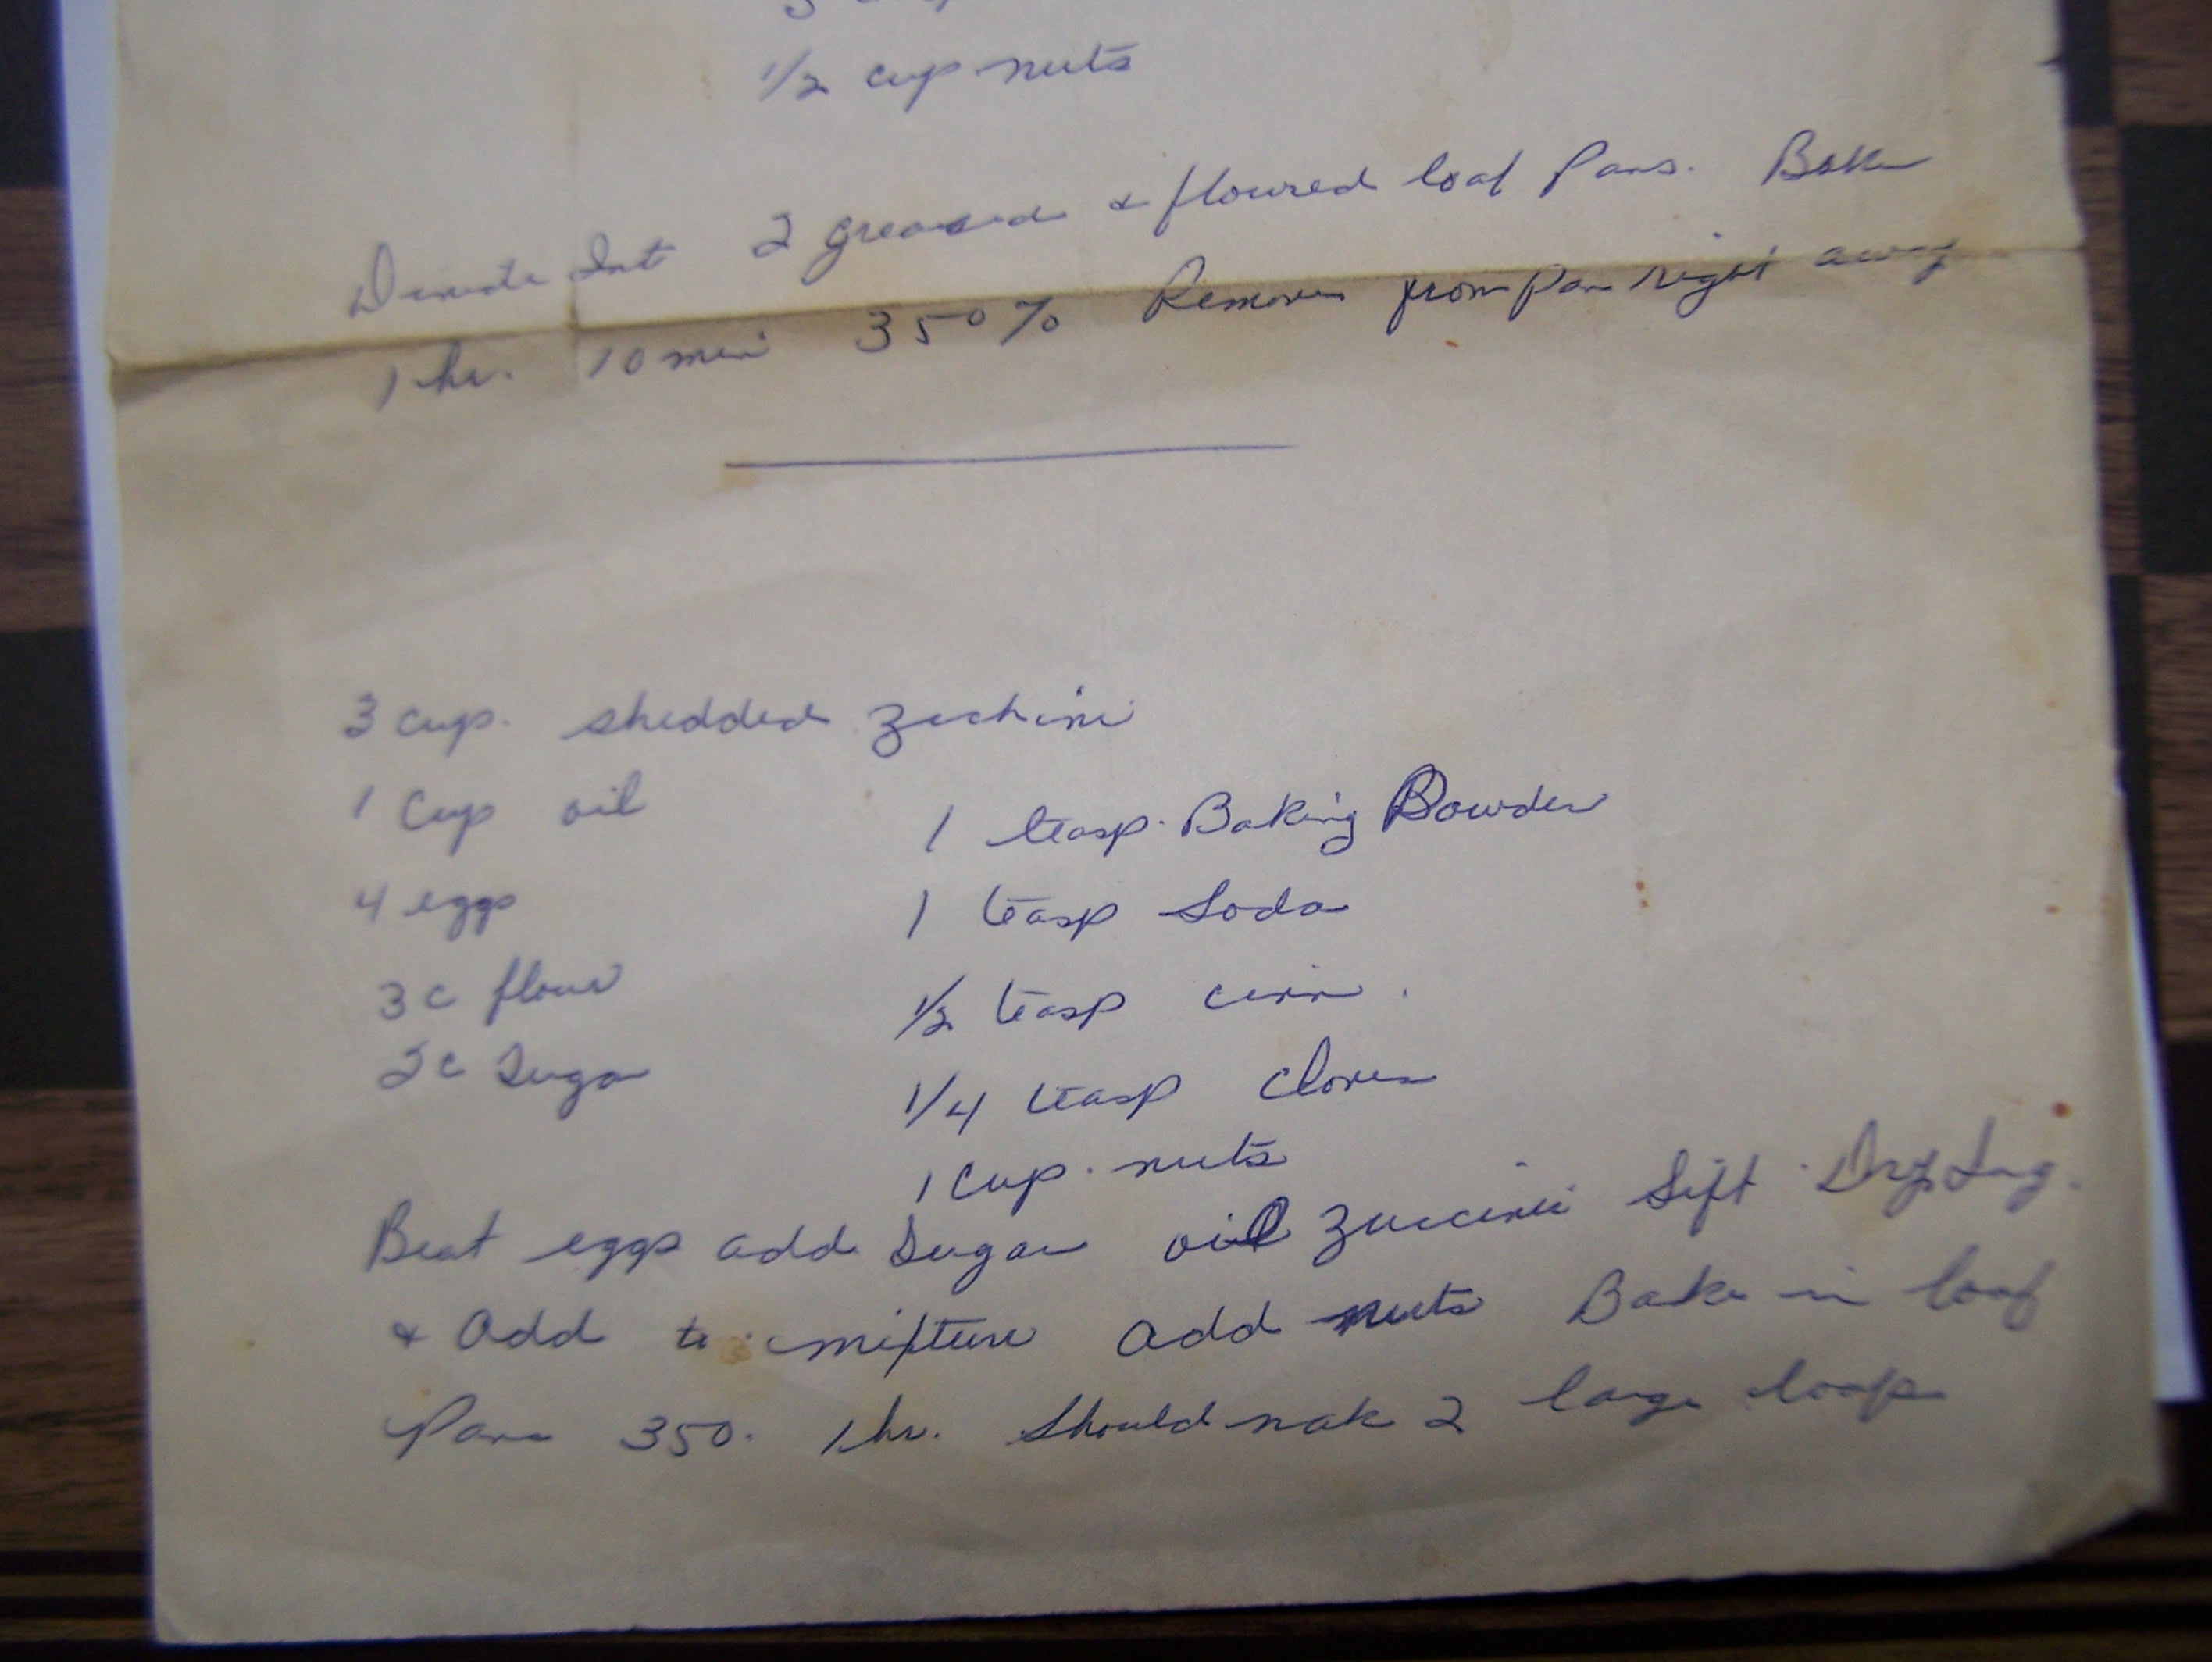 1/2 cup nuts
Devide Int 2 greased & floured loaf Pans. Bake
1 hr. 10 min 350% Remove from pan right away
3 cup. shedded zuchini
1 Cup oil
1 teasp. Baking Powder
4 eggs
1 teasp Soda
3 c flour
1/2 teasp cinn.
2 c Sugar
1/4 teasp cloves
1 cup. nuts
Beat eggs add Sugar oil zuccini Sift Dry Ing.
& Add to mixture add nuts Bake in loaf
Pans 350. 1 hr. Should mak 2 large loafs